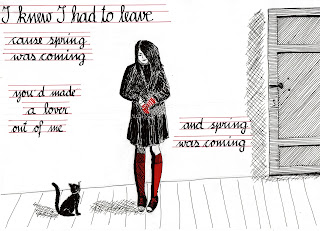 I knew I had to leave
cause spring
was coming
you'd made
a lover
out of me
and spring
was coming